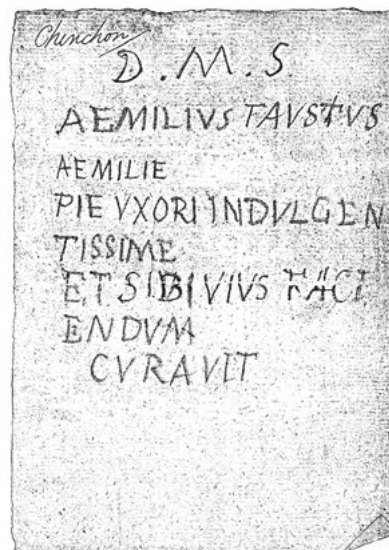 Chinchon
D.M.S.
AEMILIVS FAVSTVS
AEMILIE
PIE VXORI INDVLGEN
TISSIME
ET SIBI VIVS FACI
ENDVM
CVRAVIT